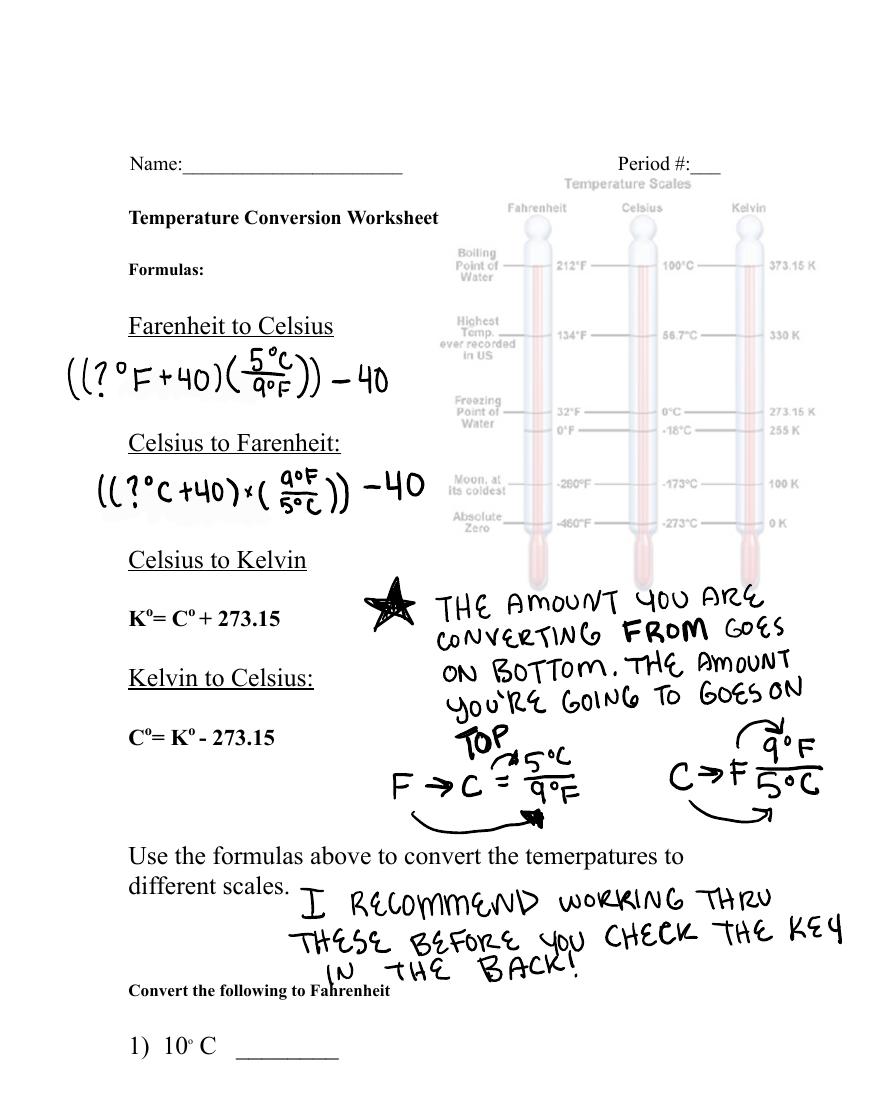 Name:______________________ Period #:___
Temperature Scales
Fahrenheit Celsius Kelvin
Temperature Conversion Worksheet
Boiling
Point of
Water
212°F 100°C 373.15 K
Formulas:
Farenheit to Celsius
Highest
Temp.
ever recorded
in US
134°F 56.7°C 330 K
((?°F+40)(5°C/9°F)) - 40
Freezing
Point of
Water
32°F 0°C 273.15 K
0°F -18°C 255 K
Celsius to Farenheit:
((?°C+40)×(9°F/5°C)) - 40
Moon, at
its coldest
-280°F -173°C 100 K
Absolute
Zero
-460°F -273°C 0 K
Celsius to Kelvin
K°= C° + 273.15
Kelvin to Celsius:
C°= K° - 273.15
★ THE AMOUNT YOU ARE
CONVERTING FROM GOES
ON BOTTOM. THE AMOUNT
YOU'RE GOING TO GOES ON
TOP
F → C = 5°C/9°F
C → F 9°F/5°C
Use the formulas above to convert the temerpatures to
different scales.
I RECOMMEND WORKING THRU
THESE BEFORE YOU CHECK THE KEY
IN THE BACK!
Convert the following to Fahrenheit
1) 10° C ________